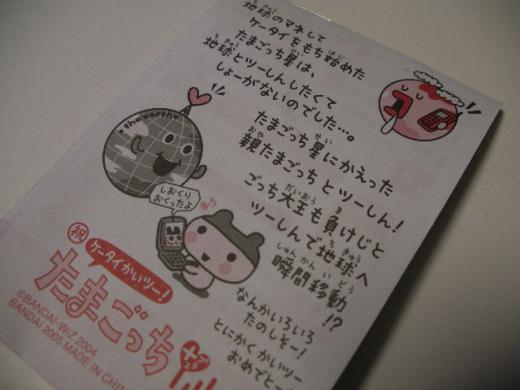 地球のマネして
ケータイをもち始めた
たまごっち星は、
地球とツーしんしたくて
しょーがないのでした…。
たまごっち星にかえった
親たまごっちとツーしん!
ごっち大王も負けじと
ツーしんで地球へ
瞬間移動!?
なんかいろいろ
たのしそー!
とにかくかいツー
おめでとー
the earth
しおくり
おくったよ
祝
ケータイかいツー!
たまごっち
©BANDAI・WIZ 2004
BANDAI 2005 MADE IN CHIN